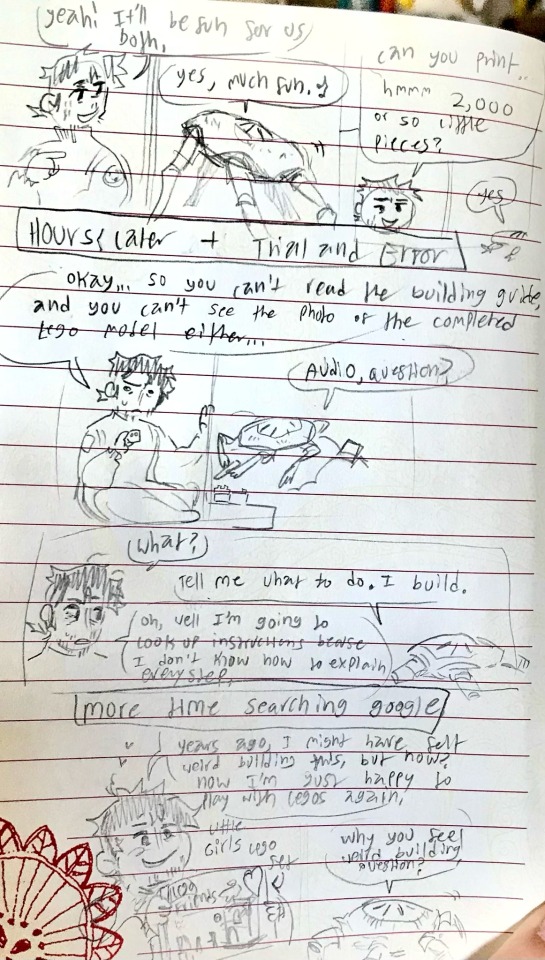 yeah! It'll be fun for us
both.
yes, much fun.
can you print..
hmmm 2,000
or so little
pieces?
yes
Hours later + Trial and Error
okay... so you can't read the building guide,
and you can't see the photo of the completed
Lego model either...
Audio, question?
what?
Tell me what to do. I build.
oh, well I'm going to
look up instructions becase
I don't know how to explain
every step.
more time searching google
years ago, I might have felt
weird building this, but now?
now I'm just happy to
play with legos again.
little
Girls Lego
set
Lego
Friends
why you feel
weird building
question?